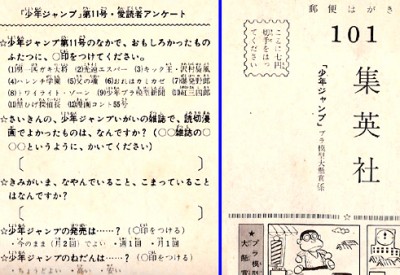 「少年ジャンプ」第11号・愛読者アンケート
☆少年ジャンプ第11号のなかで、おもしろかったもの
ふたつに、○印をつけてください。
(1)男一匹ガキ大将 (3)キック王
(4)ハレンチ学園 (5)父の魂
(8)トワイライト・ゾーン
☆さいきんの、少年ジャンプいがいの雑誌で、読切漫
画でよかったものは、なんですか？（○○雑誌の○
○○というように、かいてください）
☆きみがいま、なやんでいること、こまっていること
はなんですか？
☆少年ジャンプの発売は……？（○印をつける）
・今のまま（月2回）でよい ・週1回 ・月1回
☆少年ジャンプのねだんは……？（○印をつける）
・ちょうどよい ・高い ・安い
郵便はがき
ここに七円
切手をはっ
てください
101
集英社
「少年ジャンプ」プラ模型大懸賞係
☆プラ模型
大懸賞